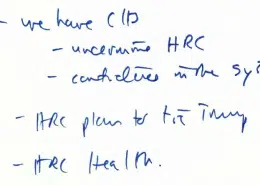 - we have CID
- undermine HRC
- candidates in the sys
- HRC plan to tie Trump
- HRC Health.